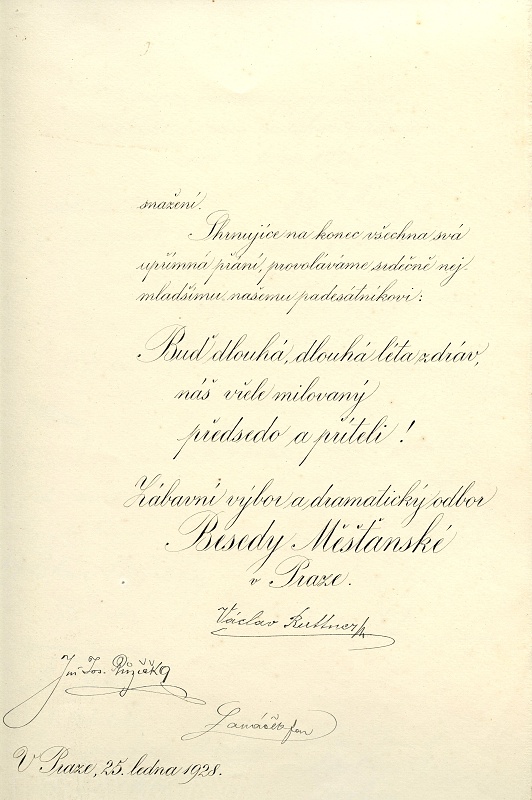 snažení.
Shrnujíce na konec všechna svá
upřímná přání, provoláváme srdečně nej
mladšímu našemu padesátníkovi:
Buď dlouhá, dlouhá léta zdráv,
náš vřele milovaný
předsedo a příteli!
Zábavní výbor a dramatický odbor
Besedy Měšťanské
v Praze.
Václav Kuttner
Jos. Růžička
V Praze, 25. ledna 1928.